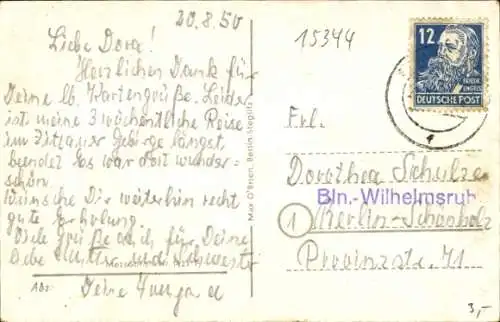 20.8.50
Liebe Dora!
Herzlichen Dank für
Deine lb. Kartengrüße. Leider
ist meine 3 wöchentliche Reise
im Zittauer Gebirge längst
beendet. Es war dort wunder-
schön.
Wünsche Dir weiterhin recht
gute Erholung
Viele Grüße auch für Deine
liebe Mutter und Schwester
Deine
Abs.
Max O'Brien, Berlin-Steglitz
15344
12
FRIEDR.
ENGELS
DEUTSCHE POST
Frl.
Dorothea Schulze
Bln.-Wilhelmsruh
1 Berlin-Schönholz
Provinzstr. 71
3,-